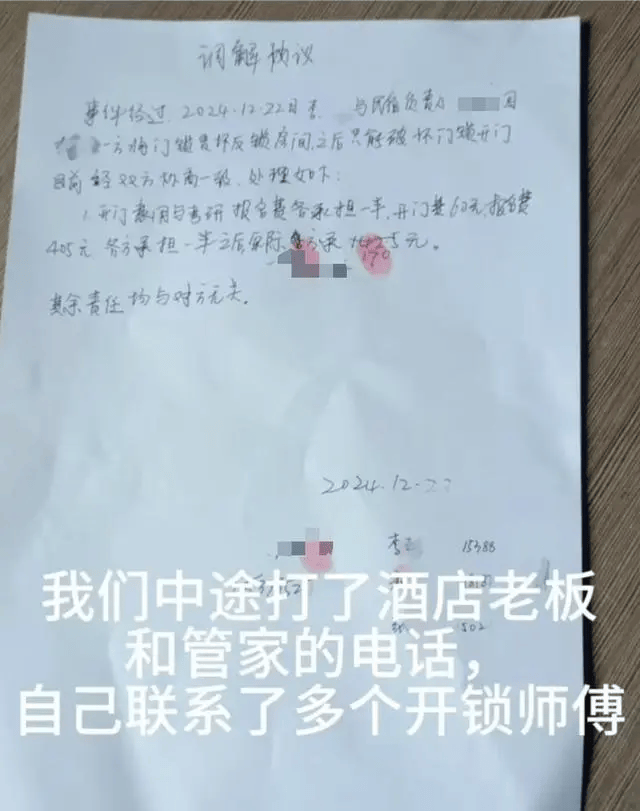 调解协议
事件经过 2024.12.22日 与民宿负责人 因
一方将门锁损坏反锁房间之后只能破坏门锁开门
目前经双方协商一致,处理如下:
1.开门费用与考研报名费各承担一半,开门费60元,报名费
405元 各方承担一半之后实际 方承
170
元。
其余责任均与对方无关。
2024.12.
李 15388
502
我们中途打了酒店老板
和管家的电话,
自己联系了多个开锁师傅